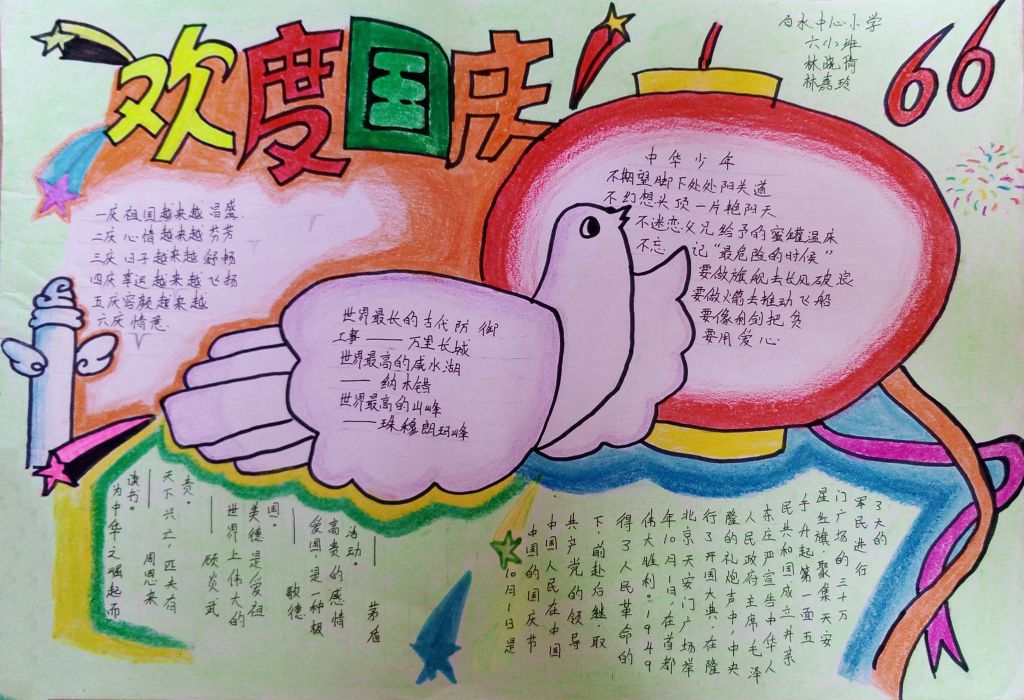 欢度国庆
白水中心小学
六小班
林晓倩
林嘉玲
66
一庆祖国越来越昌盛
二庆心情越来越芬芳
三庆日子越来越舒畅
四庆幸运越来越飞扬
五庆容颜越来越
六庆情意
中华少年
不期望脚下处处阳关道
不幻想头顶一片艳阳天
不迷恋父兄给予的蜜罐温床
不忘记“最危险的时候”
要做旗舰去长风破浪
要做火箭去推动飞船
要像利剑把负
要用爱心
世界最长的古代防御
工事——万里长城
世界最高的咸水湖
——纳木错
世界最高的山峰
——珠穆朗玛峰
为中华之崛起而
读书。
——周恩来
天下兴亡,匹夫有
责。
——顾炎武
世界上伟大的
美德是爱祖
国。
——歌德
爱国是一种极
高贵的感情
活动。
——茅盾
10月1日是
中国的国庆节
中国人民在中国
共产党的领导
下,前赴后继取
得了人民革命的
伟大胜利。1949
年10月1日,在首都
北京天安门广场举
行了开国大典,在隆
隆的礼炮声中,中央
人民政府主席毛泽
东庄严宣告中华人
民共和国成立并亲
手升起第一面五
星红旗。聚集天安
门广场的三十万
军民进行
了大的